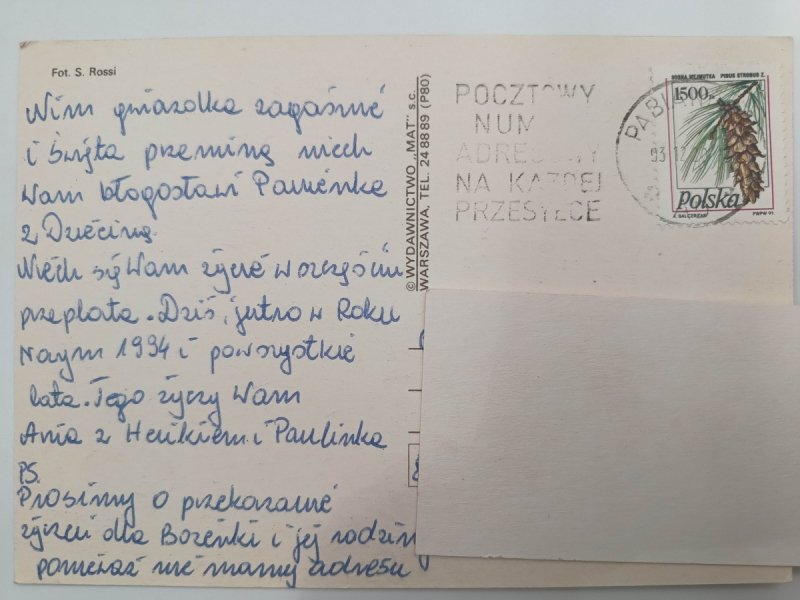 Fot. S. Rossi
Nim gwiazdka zagaśnie
i Święta przeminą niech
Wam błogosławi Panienka
z Dzieciną.
Niech się Wam życie w szczęściu
przeplata. Dziś, jutro w Roku
Nowym 1994 i po wszystkie
lata. Tego życzy Wam
Ania z Heńkiem i Paulinka
PS.
Prosimy o przekazanie
życzeń dla Bożenki i jej rodziny
ponieważ nie mamy adresu
© WYDAWNICTWO „MAT" s.c.
WARSZAWA, TEL. 24 88 89 (P80)
POCZTOWY
NUM
ADRESOWY
NA KAŻDEJ
PRZESYŁCE
PABI
93 12
SOSNA WEJMUTKA PINUS STROBUS Z.
1500
Polska
PWPW 91.